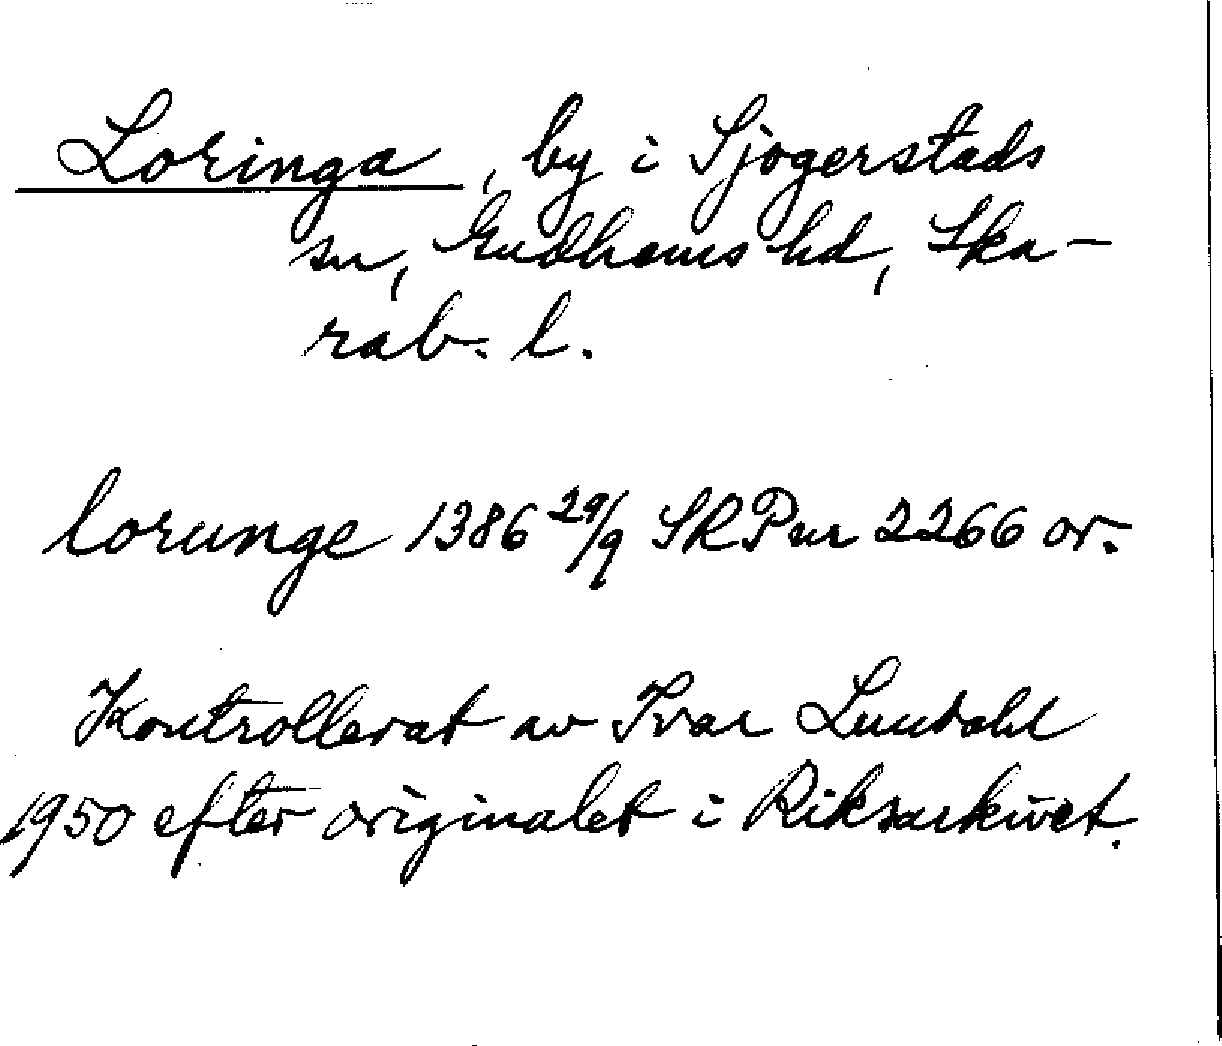 Loringa, by i Sjogerstads
sn, Gudhems hd, Ska-
rab. l.
lorunge 1386 29/9 SRP nr 2266 or.
Kontrollerat av Ivar Lundahl
1950 efter originalet i Riksarkivet.